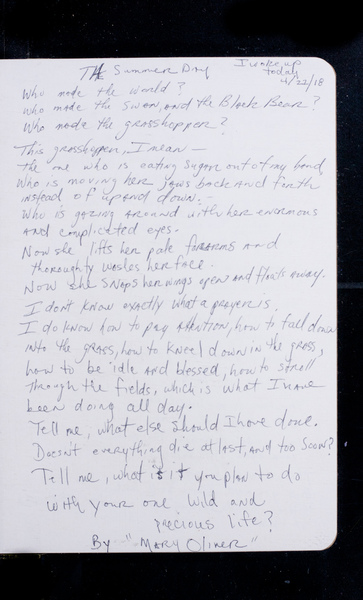 The Summer Day
I woke up
today
4/22/18
Who made the world?
Who made the Swan, and the Black Bear?
Who made the grasshopper?
This grasshopper, I mean —
The one who is eating sugar out of my hand,
Who is moving her jaws back and forth
instead of up and down. —
Who is gazing around with her enormous
and complicated eyes.
Now she lifts her pale forearms and
thoroughly washes her face.
Now she snaps her wings open and floats away.
I don't know exactly what a prayer is.
I do know how to pay attention, how to fall down
into the grass, how to kneel down in the grass,
how to be idle and blessed, how to stroll
through the fields, which is what I have
been doing all day.
Tell me, what else should I have done.
Doesn't everything die at last, and too soon?
Tell me, what is it you plan to do
with your one wild and
precious life?
By "Mary Oliver"